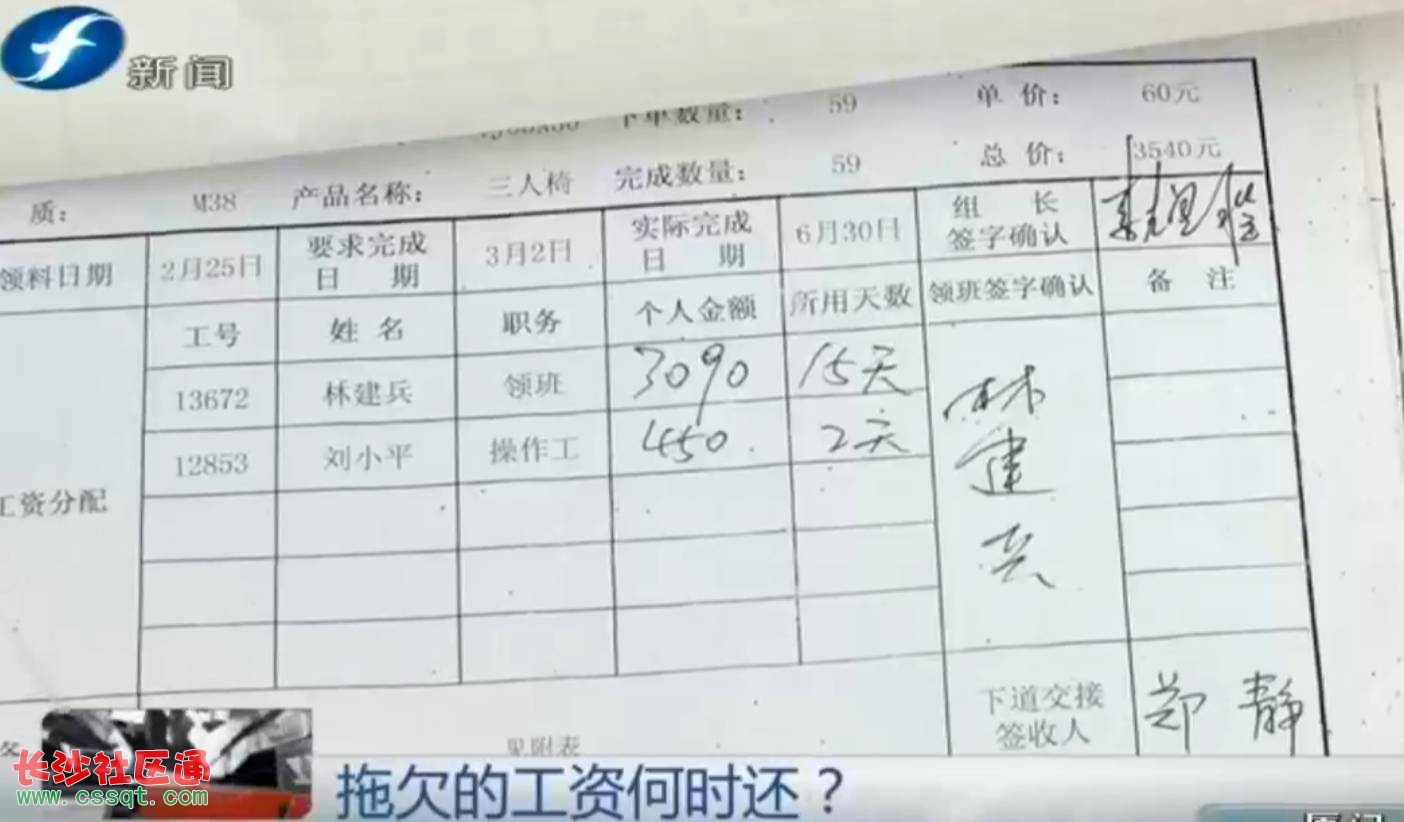 新闻
下单数量： 59 单 价： 60元
质： M38 产品名称： 三人椅 完成数量： 59 总 价： 3540元
领料日期 2月25日 要求完成日 期 3月2日 实际完成日 期 6月30日 组 长签字确认
工号 姓 名 职务 个人金额 所用天数 领班签字确认 备 注
13672 林建兵 领班 3090 15天 林建兵
12853 刘小平 操作工 450 2天
工资分配
见附表 下道交接签收人 郑静
长沙社区通
www.cssqt.com
拖欠的工资何时还？